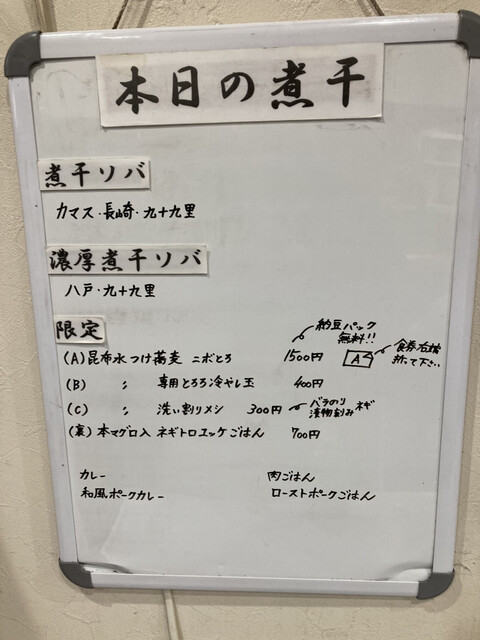 本日の煮干
煮干ソバ
カマス・長崎・九十九里
濃厚煮干ソバ
八戸・九十九里
限定
納豆パック
無料!!
(A) 昆布水つけ蕎麦 ニボとろ 1500円
A
食券右端
折って下さい
(B) 〃 専用とろろ冷やし玉 400円
(C) 〃 洗い割りメシ 300円
バラのり
漬物刻みネギ
(裏) 本マグロ入 ネギトロユッケごはん 700円
カレー
和風ポークカレー
肉ごはん
ローストポークごはん